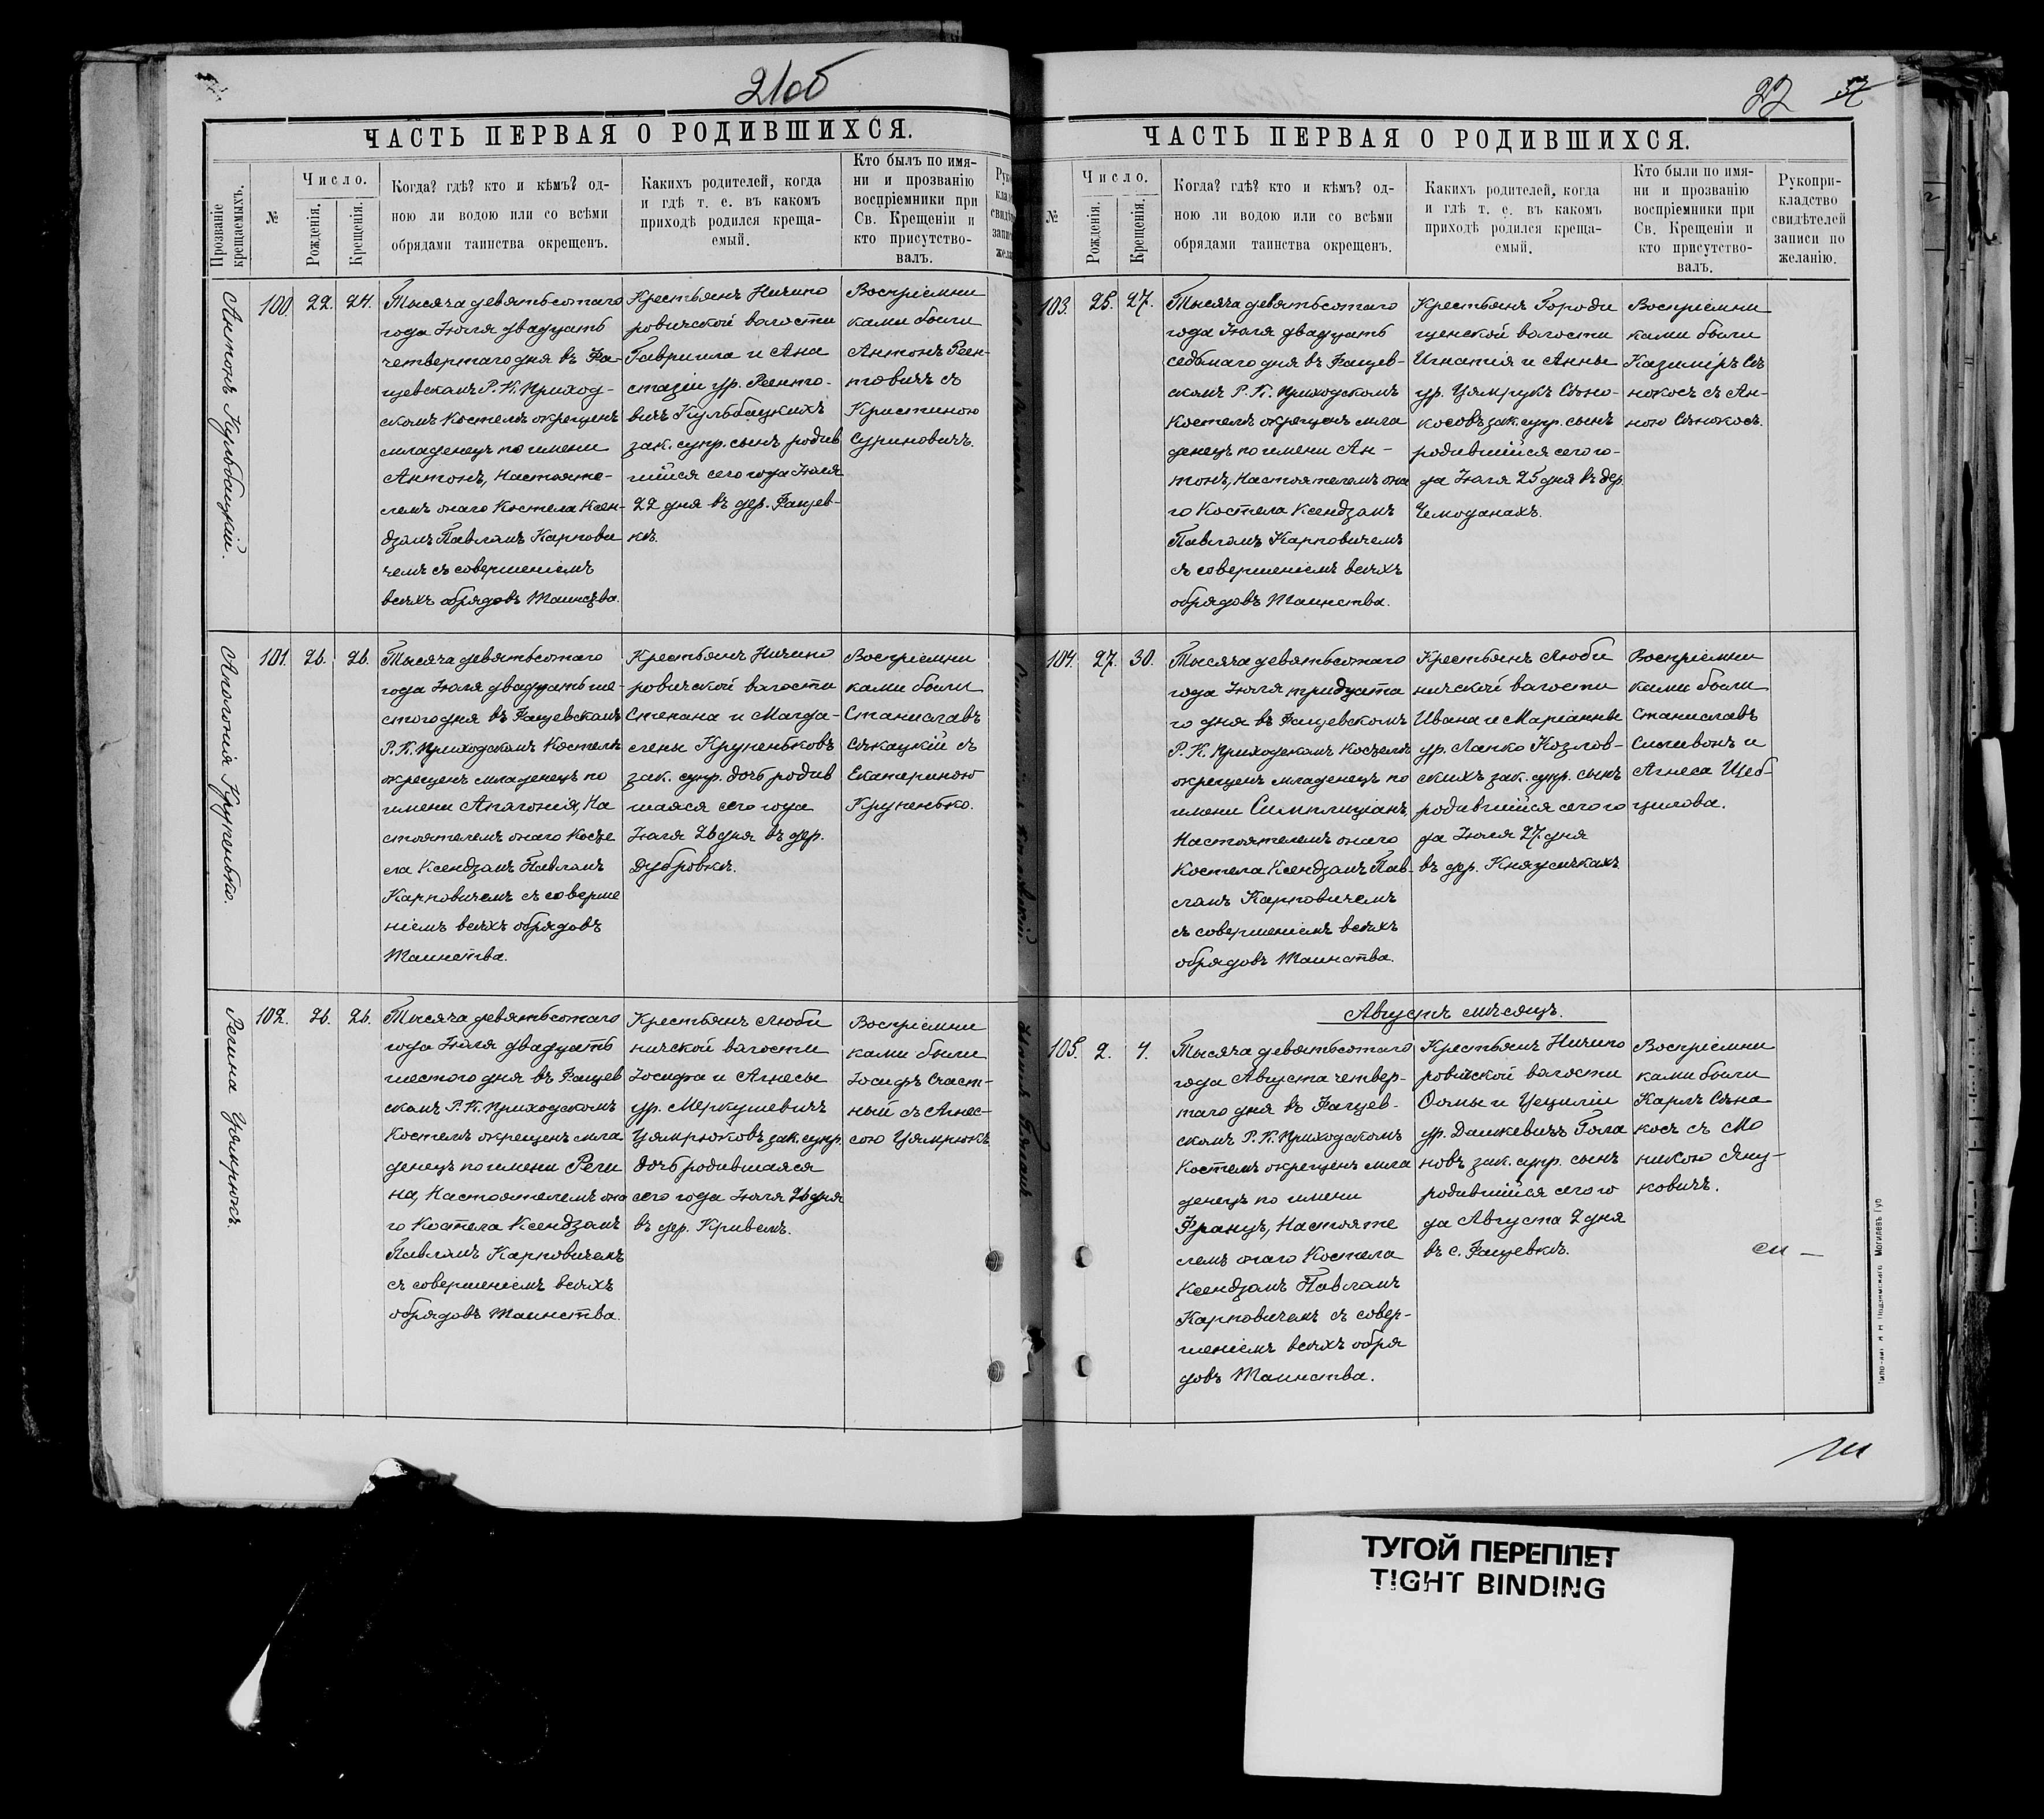 21об
ЧАСТЬ ПЕРВАЯ О РОДИВШИХСЯ.
Прозваніе крещаемыхъ.
№
Число.
Рожденія.
Крещенія.
Когда? гдѣ? кто и кѣмъ? од-
ною ли водою или со всѣми
обрядами таинства окрещенъ.
Какихъ родителей, когда
и гдѣ т. е. въ какомъ
приходѣ родился креща-
емый.
Кто былъ по имя-
ни и прозванію
воспріемники при
Св. Крещеніи и
кто присутство-
валъ.
Антонъ Кульбацкій.
100
22.
24.
Тысяча девятьсотаго
года Іюля двадцать
четвертаго дня въ Фа-
щевскомъ Р. К. Приход-
скомъ Костелѣ окрещенъ
младенецъ по имени
Антонъ, Настояте-
лемъ онаго Костела Ксен-
дзомъ Павломъ Карпови
чемъ съ совершеніемъ
всѣхъ обрядовъ Таинства.
Крестьянъ Ничипо
ровичской волости
Гавріила и Ана
стазіи ур. Реенто-
вичъ Кульбацкихъ
зак. супр. сынъ родив
шійся сего года Іюля
22 дня въ дер. Фащев-
кѣ.
Воспріемни
ками были
Антонъ Реен-
товичъ съ
Кристиною
Суриновичъ.
Апогонія Крупенько.
101.
26.
26.
Тысяча девятьсотаго
года Іюля двадцать ше-
стого дня въ Фащевскомъ
Р. К. Приходскомъ Костелѣ
окрещенъ младенецъ по
имени Апагонія, На
стоятелемъ онаго Косте
ла Ксендзомъ Павломъ
Карповичемъ съ соверше
ніемъ всѣхъ обрядовъ
Таинства.
Крестьянъ Ничипо
ровичской волости
Степана и Магда-
лены Крупеньковъ
зак. супр. дочь родив
шаяся сего года
Іюля 26 дня въ дер.
Дубровкѣ.
Воспріемни
ками были
Станиславъ
Сѣкацкій съ
Екатериною
Крупенько.
Регина Цямрюкъ.
102.
26.
26.
Тысяча девятьсотаго
года Іюля двадцать
шестого дня въ Фащев
скомъ Р. К. Приходскомъ
Костелѣ окрещенъ мла
денецъ по имени Реги
на, Настоятелемъ она
го Костела Ксендзомъ
Павломъ Карповичемъ
съ совершеніемъ всѣхъ
обрядовъ Таинства.
Крестьянъ Люби
ничской волости
Іосифа и Агнесы
ур. Меркушевичъ
Цямрюковъ зак. супр.
дочь родившаяся
сего года Іюля 26 дня
въ дер. Кривелѣ.
Воспріемни
ками были
Іосифъ Счаст-
ный съ Агнес-
сою Цямрюкъ.
22
ЧАСТЬ ПЕРВАЯ О РОДИВШИХСЯ.
№
Число.
Рожденія.
Крещенія.
Когда? гдѣ? кто и кѣмъ? од-
ною ли водою или со всѣми
обрядами таинства окрещенъ.
Какихъ родителей, когда
и гдѣ т. е. въ какомъ
приходѣ родился креща-
емый.
Кто были по имя-
ни и прозванію
воспріемники при
Св. Крещеніи и
кто присутство-
валъ.
Рукопри-
кладство
свидѣтелей
записи по
желанію.
103.
25.
27.
Тысяча девятьсотаго
года Іюля двадцать
седьмаго дня въ Фащев-
скомъ Р. К. Приходскомъ
Костелѣ окрещенъ мла
денецъ по имени Ан-
тонъ, Настоятелемъ она
го Костела Ксендзомъ
Павломъ Карповичемъ
съ совершеніемъ всѣхъ
обрядовъ Таинства.
Крестьянъ Городи
щенской волости
Игнатія и Анны
ур. Цямрукъ Сѣно-
косовъ зак. супр. сынъ
родившійся сего го-
да Іюля 25 дня въ дер.
Чемоданахъ.
Воспріемни
ками были
Казиміръ Сѣ
нокосъ съ Ан-
ною Сѣнокосъ.
104.
27.
30.
Тысяча девятьсотаго
года Іюля тридцата
го дня въ Фащевскомъ
Р. К. Приходскомъ Костелѣ
окрещенъ младенецъ по
имени Симплиціанъ,
Настоятелемъ онаго
Костела Ксендзомъ Пав-
ломъ Карповичемъ
съ совершеніемъ всѣхъ
обрядовъ Таинства.
Крестьянъ Люби
ничской волости
Ивана и Маріанны
ур. Лапко Козлов-
скихъ зак. супр. сынъ
родившійся сего го
да Іюля 27 дня
въ дер. Княжичкахъ.
Воспріемни
ками были
Станиславъ
Силивонъ и
Агнеса Щеб-
цилова.
Августъ мѣсяцъ.
105.
2.
4.
Тысяча девятьсотаго
года Августа четвер-
таго дня въ Фащев-
скомъ Р. К. Приходскомъ
Костелѣ окрещенъ мла
денецъ по имени
Францъ, Настояте
лемъ онаго Костела
Ксендзомъ Павломъ
Карповичемъ съ совер-
шеніемъ всѣхъ обря
довъ Таинства.
Крестьянъ Ничипо
ровичской волости
Ѳомы и Цециліи
ур. Дашкевичъ Гола
новъ зак. супр. сынъ
родившійся сего го
да Августа 2 дня
въ с. Фащевкѣ.
Воспріемни
ками были
Карлъ Сѣна
косъ съ Мо
никою Яну-
ковичъ.
ТУГОЙ ПЕРЕПЛЕТ
TIGHT BINDING